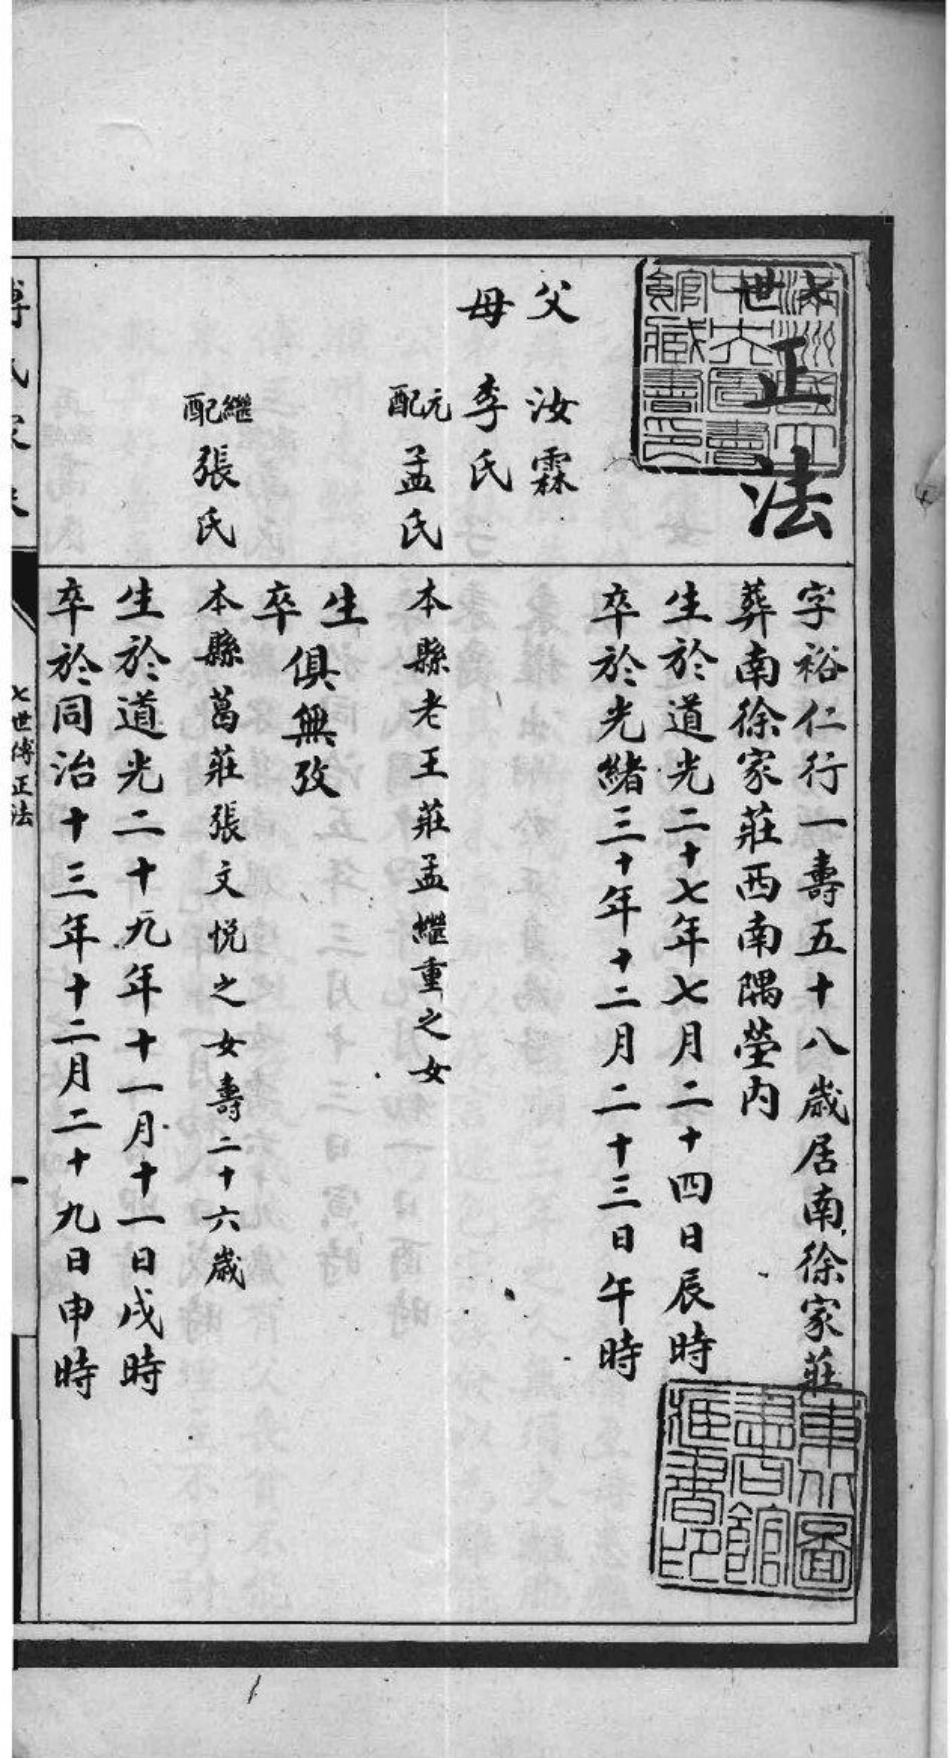 七世
正法
父 汝霖
母 李氏
元配 孟氏
繼配 張氏
字裕仁行一壽五十八歲居南徐家莊
葬南徐家莊西南隅塋內
生於道光二十七年七月二十四日辰時
卒於光緒三十年十二月二十三日午時
本縣老王莊孟繼重之女
生
卒 俱無攷
本縣葛莊張文悅之女壽二十六歲
生於道光二十九年十一月十一日戌時
卒於同治十三年十二月二十九日申時
傅氏家乘
七世傅正法
滿洲國立中央圖書館藏書印
東北圖書館藏書印